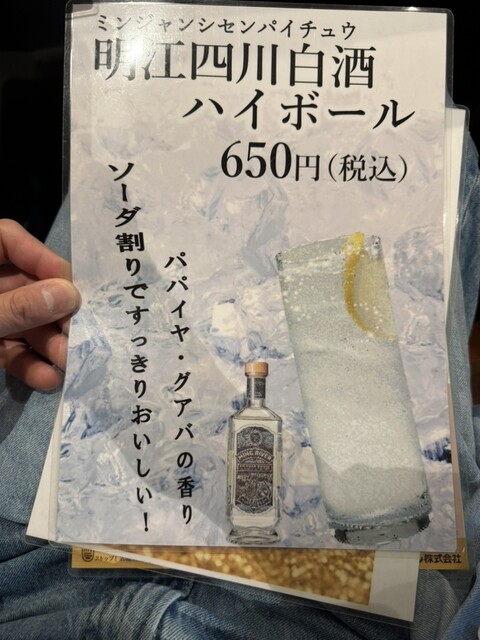 ミンジャンシセンパイチュウ
明江四川白酒
ハイボール
650円(税込)
ソーダ割りですっきりおいしい!
パパイヤ・グアバの香り
MING RIVER
ストップ!
株式会社